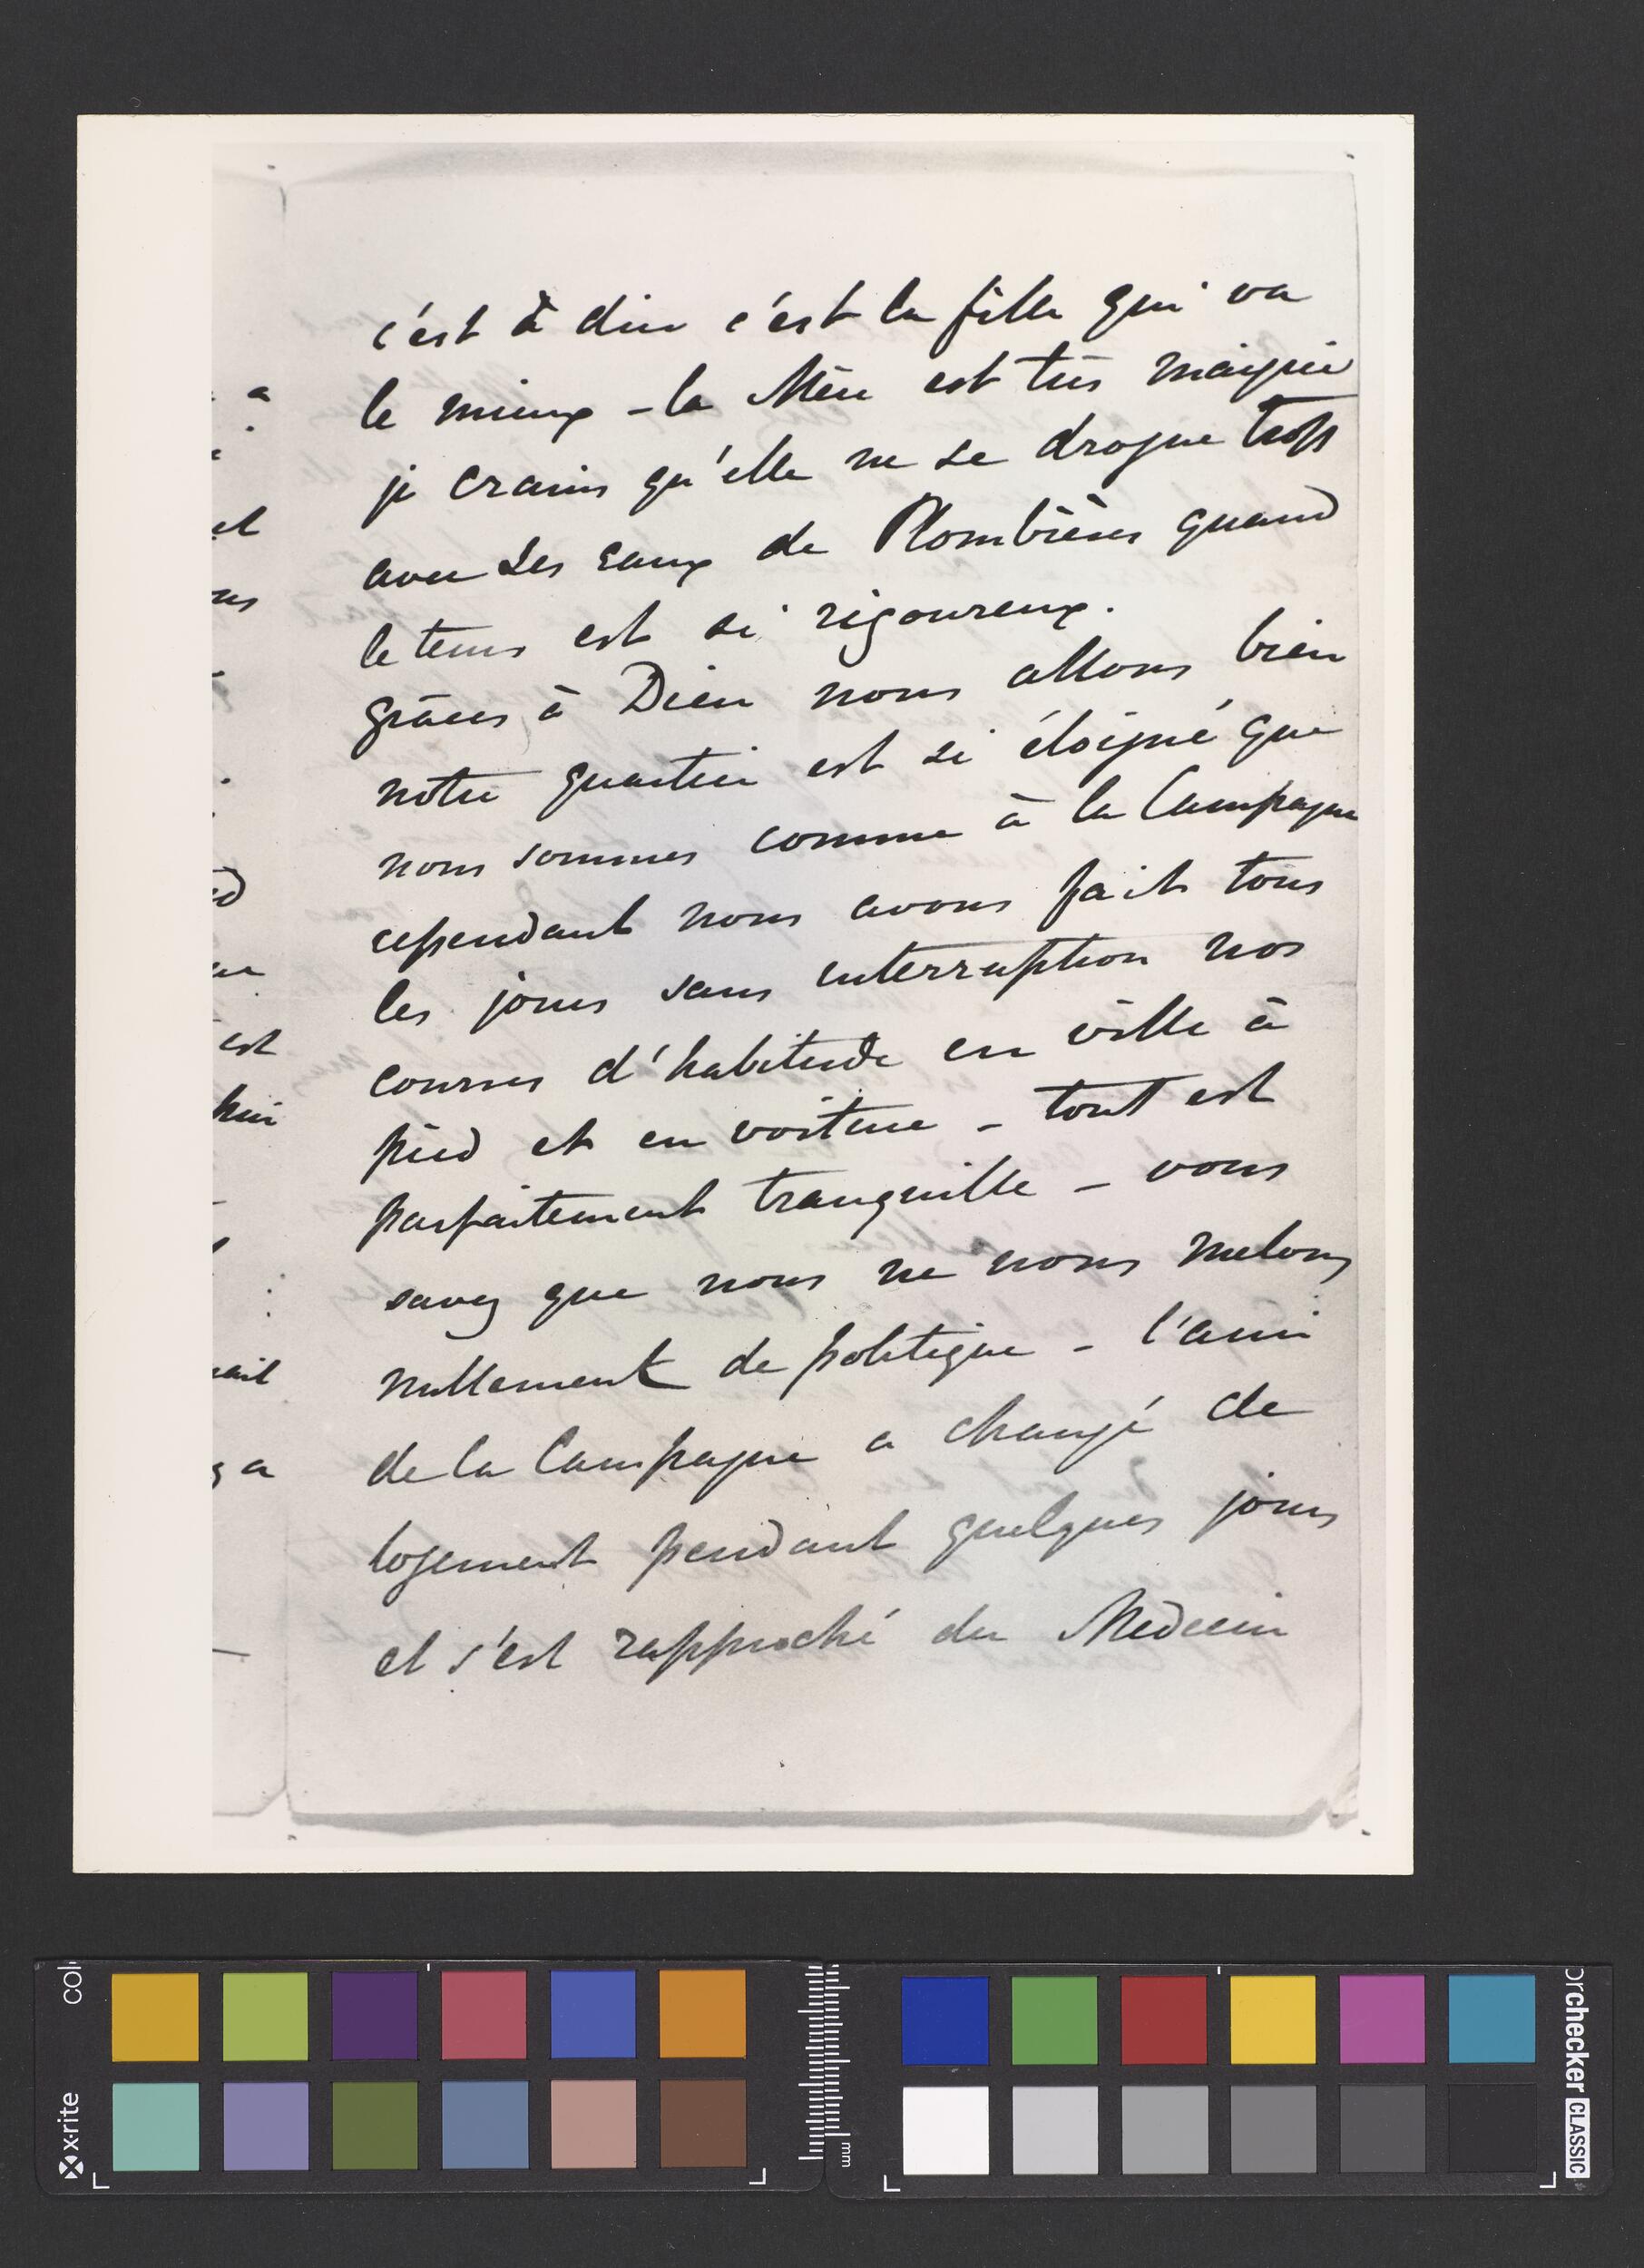 c'est à dire c'est la fille qui va
le mieux - la Mère est très maigrie
je crains qu'elle ne se drogue trop
avec Les eaux de Plombières quand
le tems est si rigoureux.
grâces à Dieu nous allons bien
notre quartier est si éloigné que
nous sommes comme à la Campagne
cependant nous avons fait tous
les jours sans interruption nos
courses d'habitude en ville à
pied et en voiture - tout est
parfaitement tranquille - vous
savez que nous ne nous melons
nullement de politique - l'ami
de la Campagne a changé de
logement pendant quelques jours
et s'est rapproché du Medecin
a
et
est
hui
a
x-rite
mm
checker CLASSIC